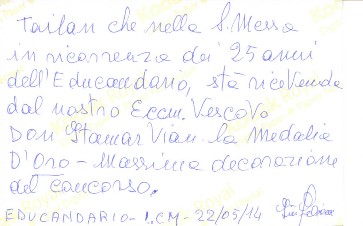 Tailan che nella S. Messa
in ricorrenza dei 25 anni
dell'Educandario, stà ricevendo
dal nostro Eccm. Vescovo
Don Itamar Vian la Medalia
D'Oro - Massima decorazione
del Concorso.
EDUCANDARIO - I.CM - 22/05/14